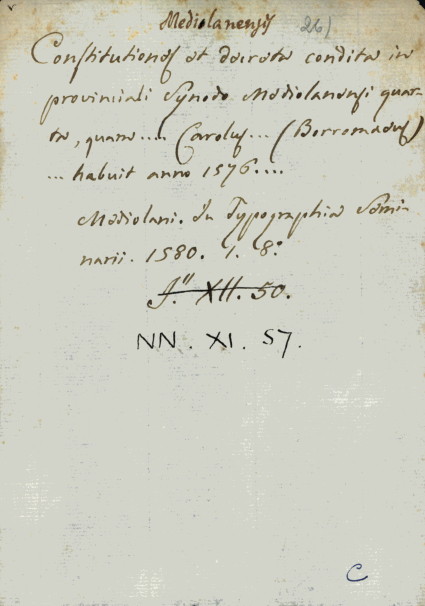 Mediolanensis 26)
Constitutiones et decreta condita in
provinciali Synodo Mediolanensi quar-
ta, quam .... Carolus ... (Borromaeus)
... habuit anno 1576 ....
Mediolani. In Typographia Semi-
narii. 1580. 1. 8:
J." XII. 50.
NN. XI. 57.
C